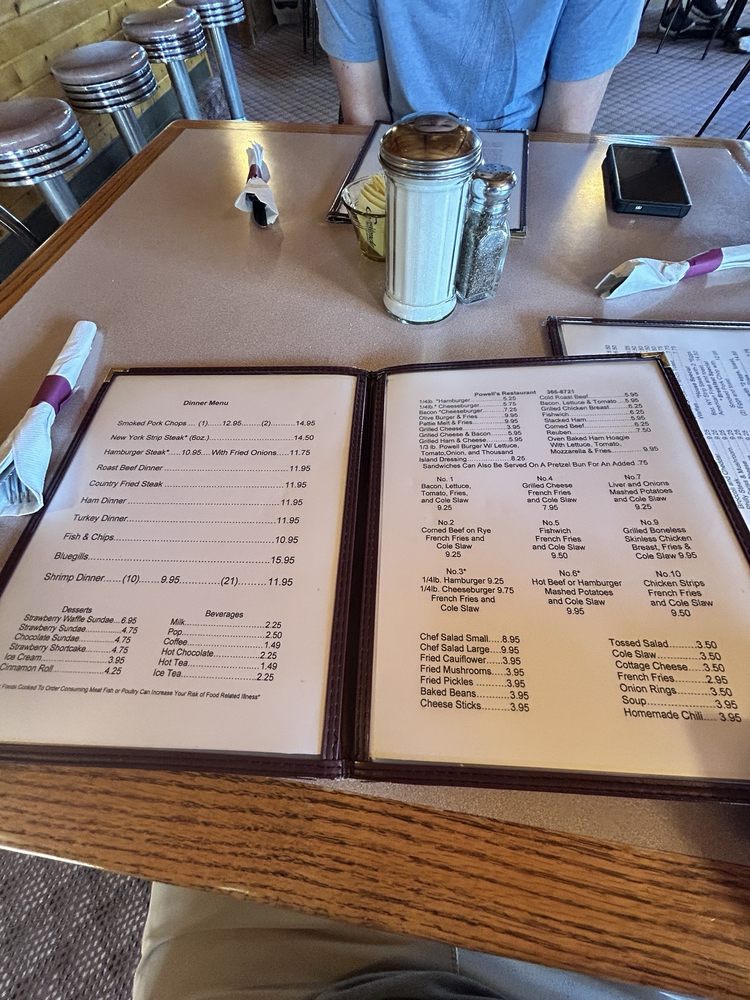 Dinner Menu
Smoked Pork Chops ... (1).....12.95.......(2)..............14.95
New York Strip Steak* (6oz.)...............................14.50
Hamburger Steak*.....10.95.... With Fried Onions.....11.75
Roast Beef Dinner..........................................11.95
Country Fried Steak........................................11.95
Ham Dinner.................................................11.95
Turkey Dinner..............................................11.95
Fish & Chips...............................................10.95
Bluegills..................................................15.95
Shrimp Dinner.....(10)....... 9.95...........(21)........... 11.95
Desserts
Strawberry Waffle Sundae...6.95
Strawberry Sundae............4.75
Chocolate Sundae............4.75
Strawberry Shortcake........4.75
Ice Cream....................3.95
Cinnamon Roll...............4.25
Beverages
Milk........................2.25
Pop.........................2.50
Coffee......................1.49
Hot Chocolate..............2.25
Hot Tea.....................1.49
Ice Tea.....................2.25
Foods Cooked To Order Consuming Meat Fish or Poultry Can Increase Your Risk of Food Related Illness*
Powell's Restaurant 366-8721
1/4lb. *Hamburger...............5.25
1/4lb.* Cheeseburger...........5.75
Bacon *Cheeseburger...........7.25
Olive Burger & Fries............9.95
Pattie Melt & Fries..............9.95
Grilled Cheese...................3.95
Grilled Cheese & Bacon.......5.95
Grilled Ham & Cheese..........5.95
1/3 lb. Powell Burger W/ Lettuce,
Tomato,Onion, and Thousand
Island Dressing..................8.25
Cold Roast Beef...................5.95
Bacon, Lettuce & Tomato.....5.95
Grilled Chicken Breast.........6.25
Fishwich............................6.25
Stacked Ham.....................5.95
Corned Beef......................6.25
Reuben.............................7.50
Oven Baked Ham Hoagie
With Lettuce, Tomato,
Mozzarella & Fries...............9.95
Sandwiches Can Also Be Served On A Pretzel Bun For An Added .75
No. 1
Bacon, Lettuce,
Tomato, Fries,
and Cole Slaw
9.25
No.4
Grilled Cheese
French Fries
and Cole Slaw
7.95
No.7
Liver and Onions
Mashed Potatoes
and Cole Slaw
9.25
No.2
Corned Beef on Rye
French Fries and
Cole Slaw
9.25
No.5
Fishwich
French Fries and
Cole Slaw
9.50
No.9
Grilled Boneless
Skinless Chicken
Breast, Fries &
Cole Slaw 9.95
No.3*
1/4lb. Hamburger 9.25
1/4lb. Cheeseburger 9.75
French Fries and
Cole Slaw
No.6*
Hot Beef or Hamburger
Mashed Potatoes
and Cole Slaw
9.95
No.10
Chicken Strips
French Fries
and Cole Slaw
9.50
Chef Salad Small.....8.95
Chef Salad Large....9.95
Fried Cauliflower.....3.95
Fried Mushrooms....3.95
Fried Pickles..........3.95
Baked Beans..........3.95
Cheese Sticks.........3.95
Tossed Salad..........3.50
Cole Slaw...............3.50
Cottage Cheese.....3.50
French Fries...........2.95
Onion Rings...........3.50
Soup.....................3.95
Homemade Chili..... 3.95